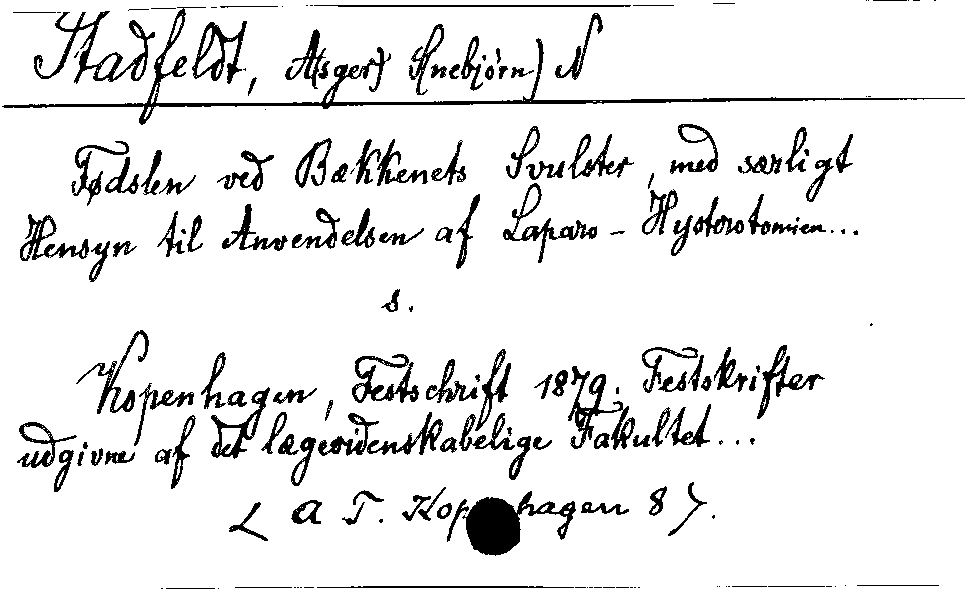 Stadfeldt, A(sger) S(nebjörn) N
Fødslen ved Bækkenets Svulster, med særligt
Hensyn til Anvendelsen af Laparo-Hysterotomien...
s.
Kopenhagen, Festschrift 1879. Festskrifter
udgivne af det lægevidenskabelige Fakultet...
< a T. Kopenhagen 8 >.